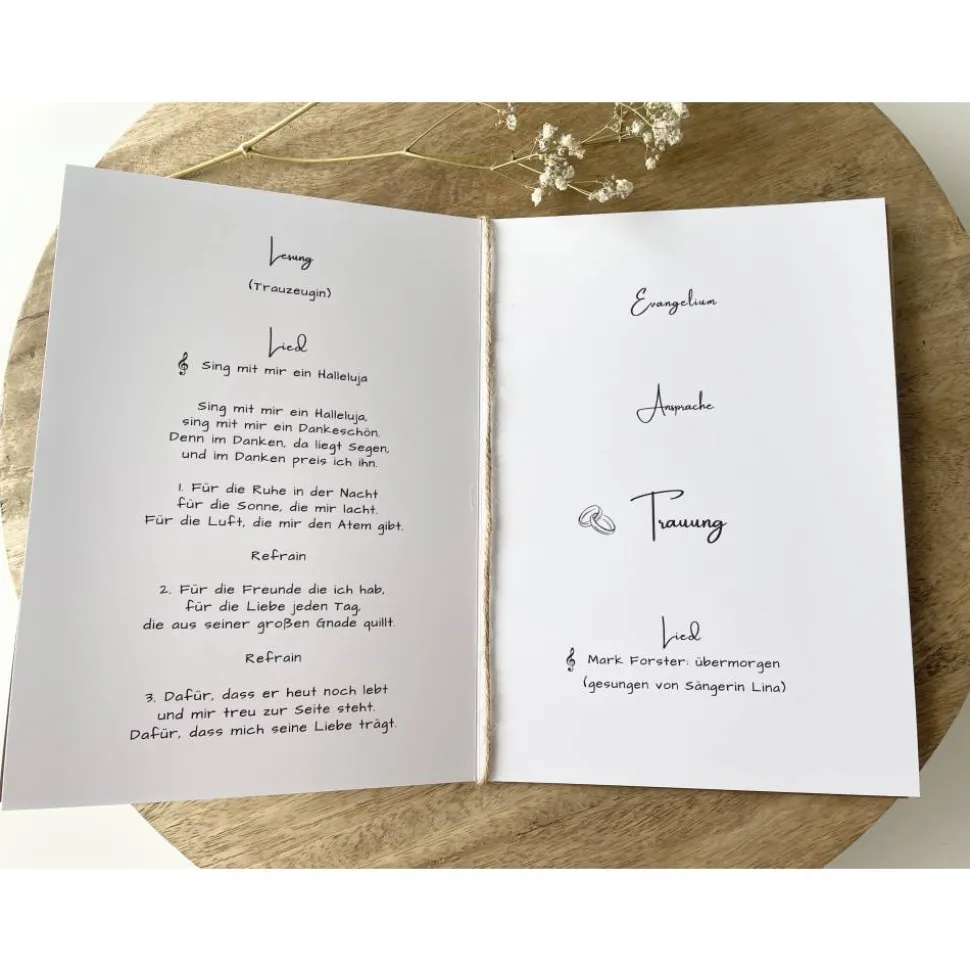 Lesung
(Trauzeugin)
Lied
Sing mit mir ein Halleluja
Sing mit mir ein Halleluja,
sing mit mir ein Dankeschön.
Denn im Danken, da liegt Segen,
und im Danken preis ich ihn.
1. Für die Ruhe in der Nacht
für die Sonne, die mir lacht.
Für die Luft, die mir den Atem gibt.
Refrain
2. Für die Freunde die ich hab,
für die Liebe jeden Tag,
die aus seiner großen Gnade quillt.
Refrain
3. Dafür, dass er heut noch lebt
und mir treu zur Seite steht.
Dafür, dass mich seine Liebe trägt.
Evangelium
Ansprache
Trauung
Lied
Mark Forster: übermorgen
(gesungen von Sängerin Lina)